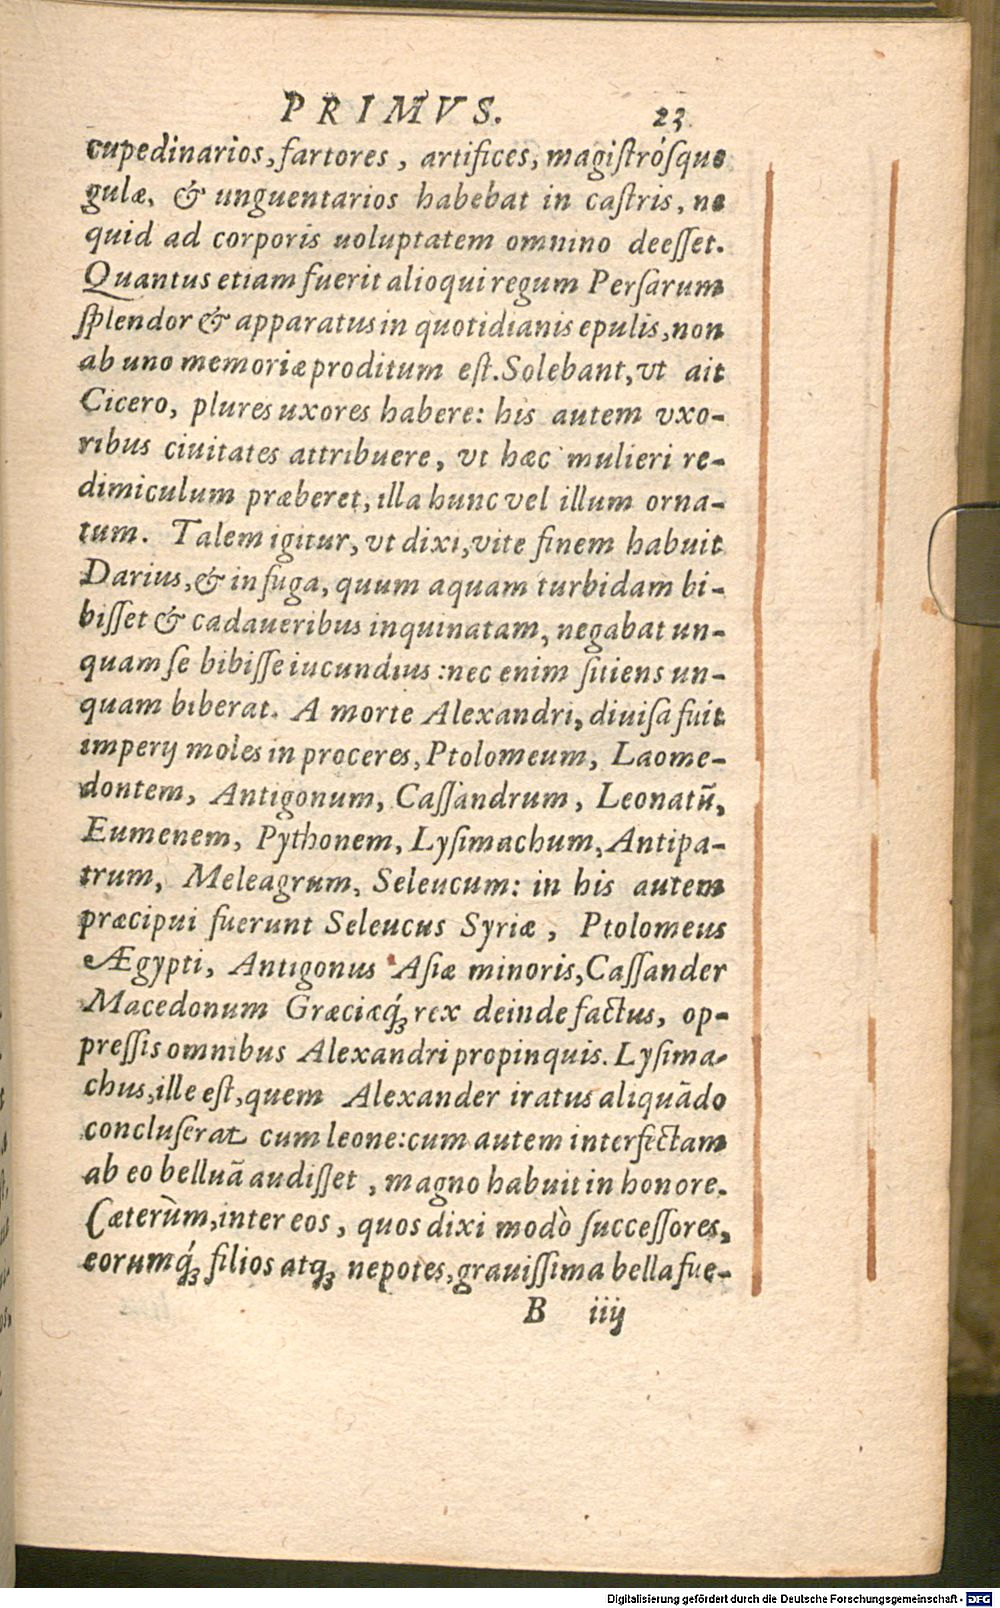 PRIMVS. 23
cupedinarios, fartores, artifices, magistrósque
gulæ, & unguentarios habebat in castris, ne
quid ad corporis uoluptatem omnino deesset.
Quantus etiam fuerit alioqui regum Persarum
splendor & apparatus in quotidianis epulis, non
ab uno memoriæ proditum est. Solebant, vt ait
Cicero, plures uxores habere: his autem vxo-
ribus ciuitates attribuere, vt hæc mulieri re-
dimiculum præberet, illa hunc vel illum orna-
tum. Talem igitur, vt dixi, vite finem habuit
Darius, & in fuga, quum aquam turbidam bi-
bisset & cadaueribus inquinatam, negabat un-
quam se bibisse iucundius: nec enim sitiens un-
quam biberat. A morte Alexandri, diuisa fuit
imperij moles in proceres, Ptolomeum, Laome-
dontem, Antigonum, Cassandrum, Leonatũ,
Eumenem, Pythonem, Lysimachum, Antipa-
trum, Meleagrum, Seleucum: in his autem
præcipui fuerunt Seleucus Syriæ, Ptolomeus
Ægypti, Antigonus Asiæ minoris, Cassander
Macedonum Græciæq́ꝫ rex deinde factus, op-
pressis omnibus Alexandri propinquis. Lysima-
chus, ille est, quem Alexander iratus aliquãdo
concluserat cum leone: cum autem interfectam
ab eo belluã audisset, magno habuit in honore.
Cæterùm, inter eos, quos dixi modò successores,
eorumq́ꝫ filios atqꝫ nepotes, grauissima bella fue-
B iiij
Digitalisierung gefördert durch die Deutsche Forschungsgemeinschaft - DFG